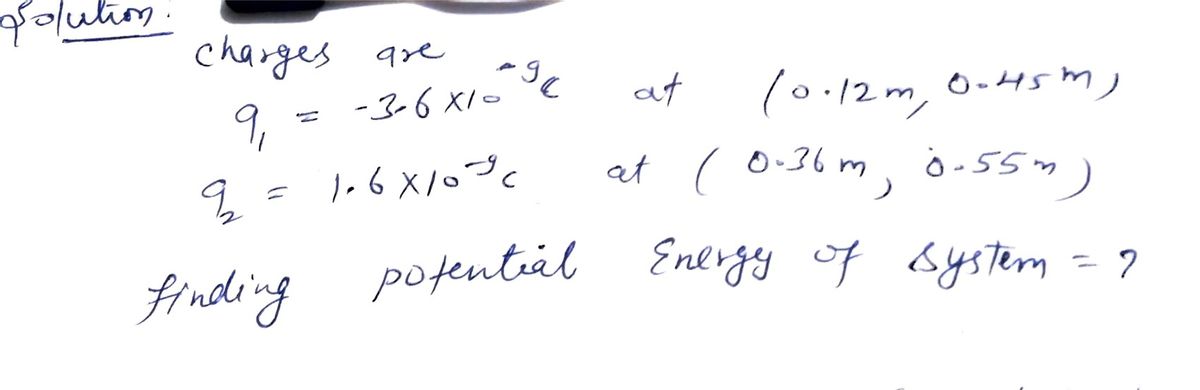 Solution:
charges are
q₁ = -3.6 X10⁻⁹C at (0.12m, 0.45m)
q₂ = 1.6 X10⁻⁹C at (0.36m, 0.55m)
finding potential Energy of System = ?